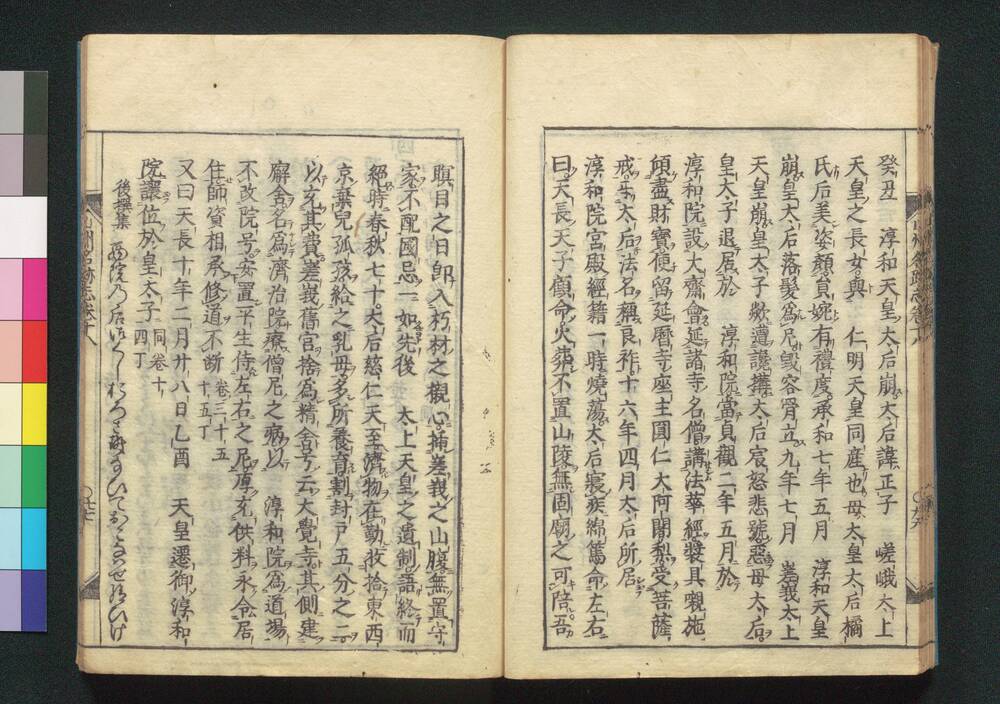 癸丑 淳和天皇太后崩太后諱正子 嵯峨太上
天皇之長女與 仁明天皇同産也母太皇太后橘
氏后美姿顔貟婉有禮度承和七年五月 淳和天皇
崩皇太后落髮爲尼毀容骨立九年七月 嵯峨太上
天皇崩皇太子歘遭讒搆太后宸怒悲號惡母太后
皇太子退居於 淳和院當貞觀二年五月於
淳和院設大齋會延諸寺名僧講法華經裝具嚫施
傾盡財寶便留延曆寺座主圓仁大阿闍梨受菩薩
戒乎太后法名稱良祚十六年四月太后所居
淳和院宮殿經籍一時燒蕩太后寢疾綿篤命左右
曰天長天子顧命火葬不置山陵無國廟之可陪吾
瞑目之日即入朽材之櫬心捕嵯峨之山腹無置守
家不配國忌一如先後 太上天皇之遺制語終而
絕時春秋七十太后慈仁天至濟物在勤收拾東西
京棄兒孤孩給之乳母多所養育割封戸五分之二
以充其費嵯峨舊宮捨為精舎号云大覺寺其側建
廨舎名爲濟治院療僧尼之病以 淳和院爲道場
不改院号安置平生侍左右之尼厚充供料永令居
住師資相承修道不断 卷三十五 十五丁
又曰天長十年二月廿八日乙酉 天皇遷御淳和
院讓位於皇太子 同卷十 四丁
後撰集